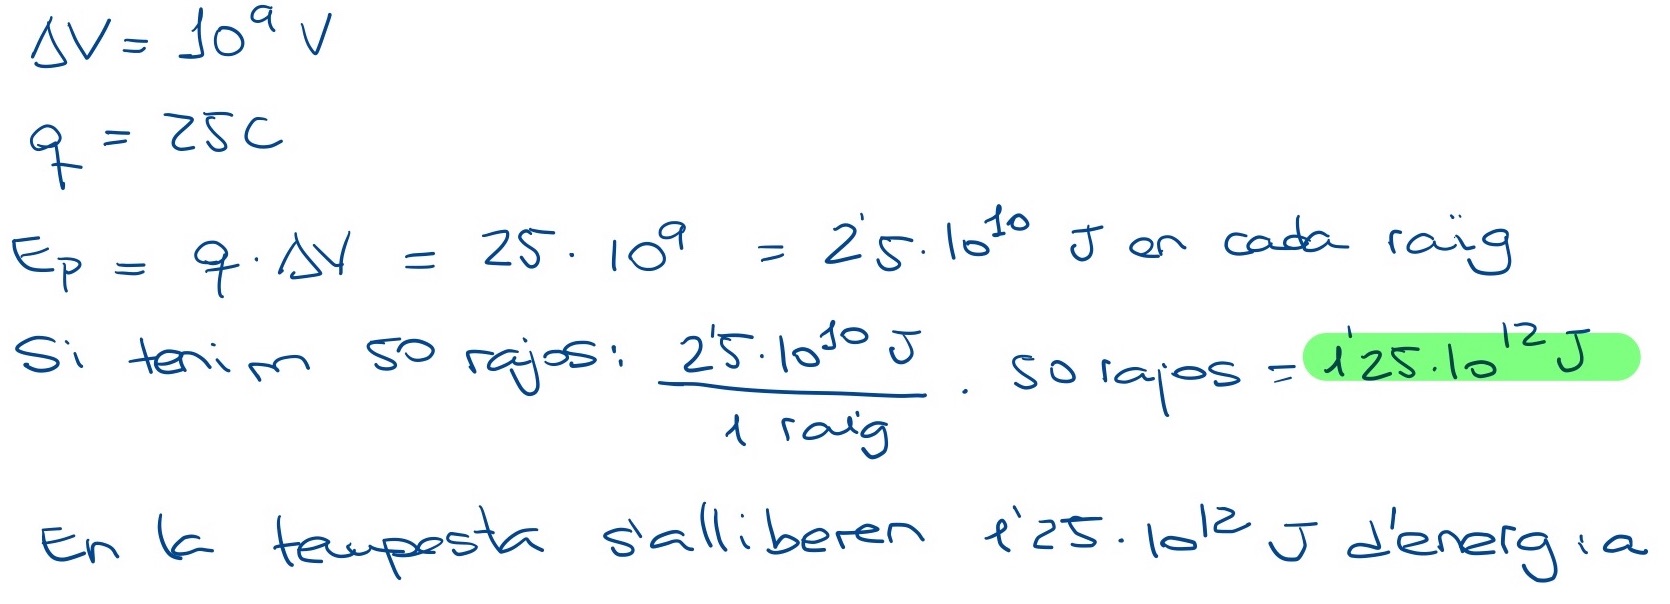 ΔV = 10⁹ V
q = 25C
Ep = q · ΔV = 25 · 10⁹ = 2'5 · 10¹⁰ J en cada raïg
Si tenim 50 rajos: 2'5 · 10¹⁰ J / 1 raig · 50 rajos = 1'25 · 10¹² J
En la tempesta s'alliberen 1'25 · 10¹² J d'energia